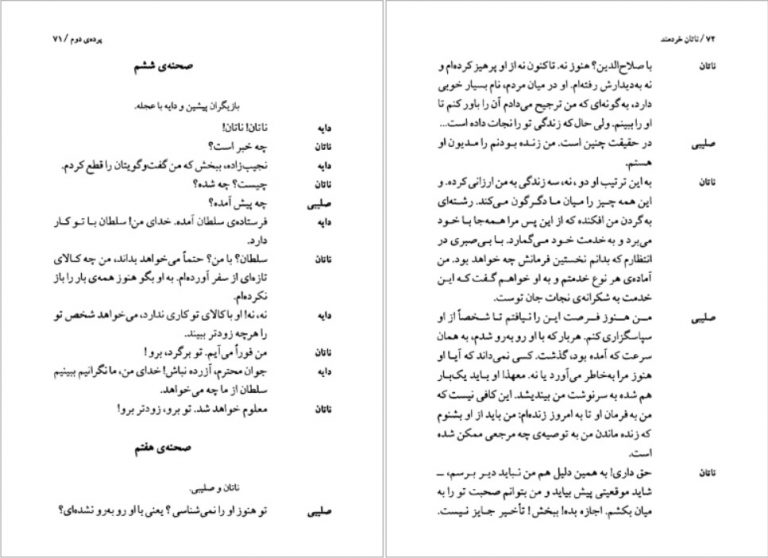 پرده‌ی دوم / ۷۱
صحنه‌ی ششم
بازیگران پیشین و دایه با عجله.
دایه ناتان! ناتان!
ناتان چه خبر است؟
دایه نجیب‌زاده، ببخش که من گفت‌وگویتان را قطع کردم.
ناتان چیست؟ چه شده؟
صلیبی چه پیش آمده؟
دایه فرستاده‌ی سلطان آمده. خدای من! سلطان با تو کار
دارد.
ناتان سلطان؟ با من؟ حتماً می‌خواهد بداند، من چه کالای
تازه‌ای از سفر آورده‌ام. به او بگو هنوز همه‌ی بار را باز
نکرده‌ام.
دایه نه، نه! او با کالای تو کاری ندارد، می‌خواهد شخص تو
را هرچه زودتر ببیند.
ناتان من فوراً می‌آیم. تو برگرد، برو!
دایه جوان محترم، آزرده نباش! خدای من، ما نگرانیم ببینیم
سلطان از ما چه می‌خواهد.
ناتان معلوم خواهد شد. تو برو، زودتر برو!
صحنه‌ی هفتم
ناتان و صلیبی.
صلیبی تو هنوز او را نمی‌شناسی؟ یعنی با او رو به‌رو نشده‌ای؟
۷۲ / ناتان خردمند
ناتان با صلاح‌الدین؟ هنوز نه. تاکنون نه از او پرهیز کرده‌ام و
نه به‌دیدارش رفته‌ام. او در میان مردم، نام بسیار خوبی
دارد، به‌گونه‌ای که من ترجیح می‌دادم آن را باور کنم تا
او را ببینم. ولی حال که زندگی تو را نجات داده است...
صلیبی در حقیقت چنین است. من زنده بودنم را مدیون او
هستم.
ناتان به این ترتیب او دو، نه، سه زندگی به من ارزانی کرده. و
این همه چیز را میان ما دگرگون می‌کند. رشته‌ای
به‌گردن من افکنده که از این پس مرا همه‌جا با خود
می‌برد و به خدمت خود می‌گمارد. با بی‌صبری در
انتظارم که بدانم نخستین فرمانش چه خواهد بود. من
آماده‌ی هر نوع خدمتم و به او خواهم گفت که این
خدمت به شکرانه‌ی نجات جان توست.
صلیبی من هنوز فرصت این را نیافتم تا شخصاً از او
سپاسگزاری کنم. هربار که با او رو به‌رو شدم، به همان
سرعت که آمده بود، گذشت. کسی نمی‌داند که آیا او
هنوز مرا به‌خاطر می‌آورد یا نه. معهذا او باید یک‌بار
هم شده به سرنوشت من بیندیشد. این کافی نیست که
من به فرمان او تا به امروز زنده‌ام: من باید از او بشنوم
که زنده ماندن من به توصیه‌ی چه مرجعی ممکن شده
است.
ناتان حق داری! به همین دلیل هم من نباید دیر برسم، ــ
شاید موقعیتی پیش بیاید و من بتوانم صحبت تو را به
میان بکشم. اجازه بده! ببخش! تأخیر جایز نیست.